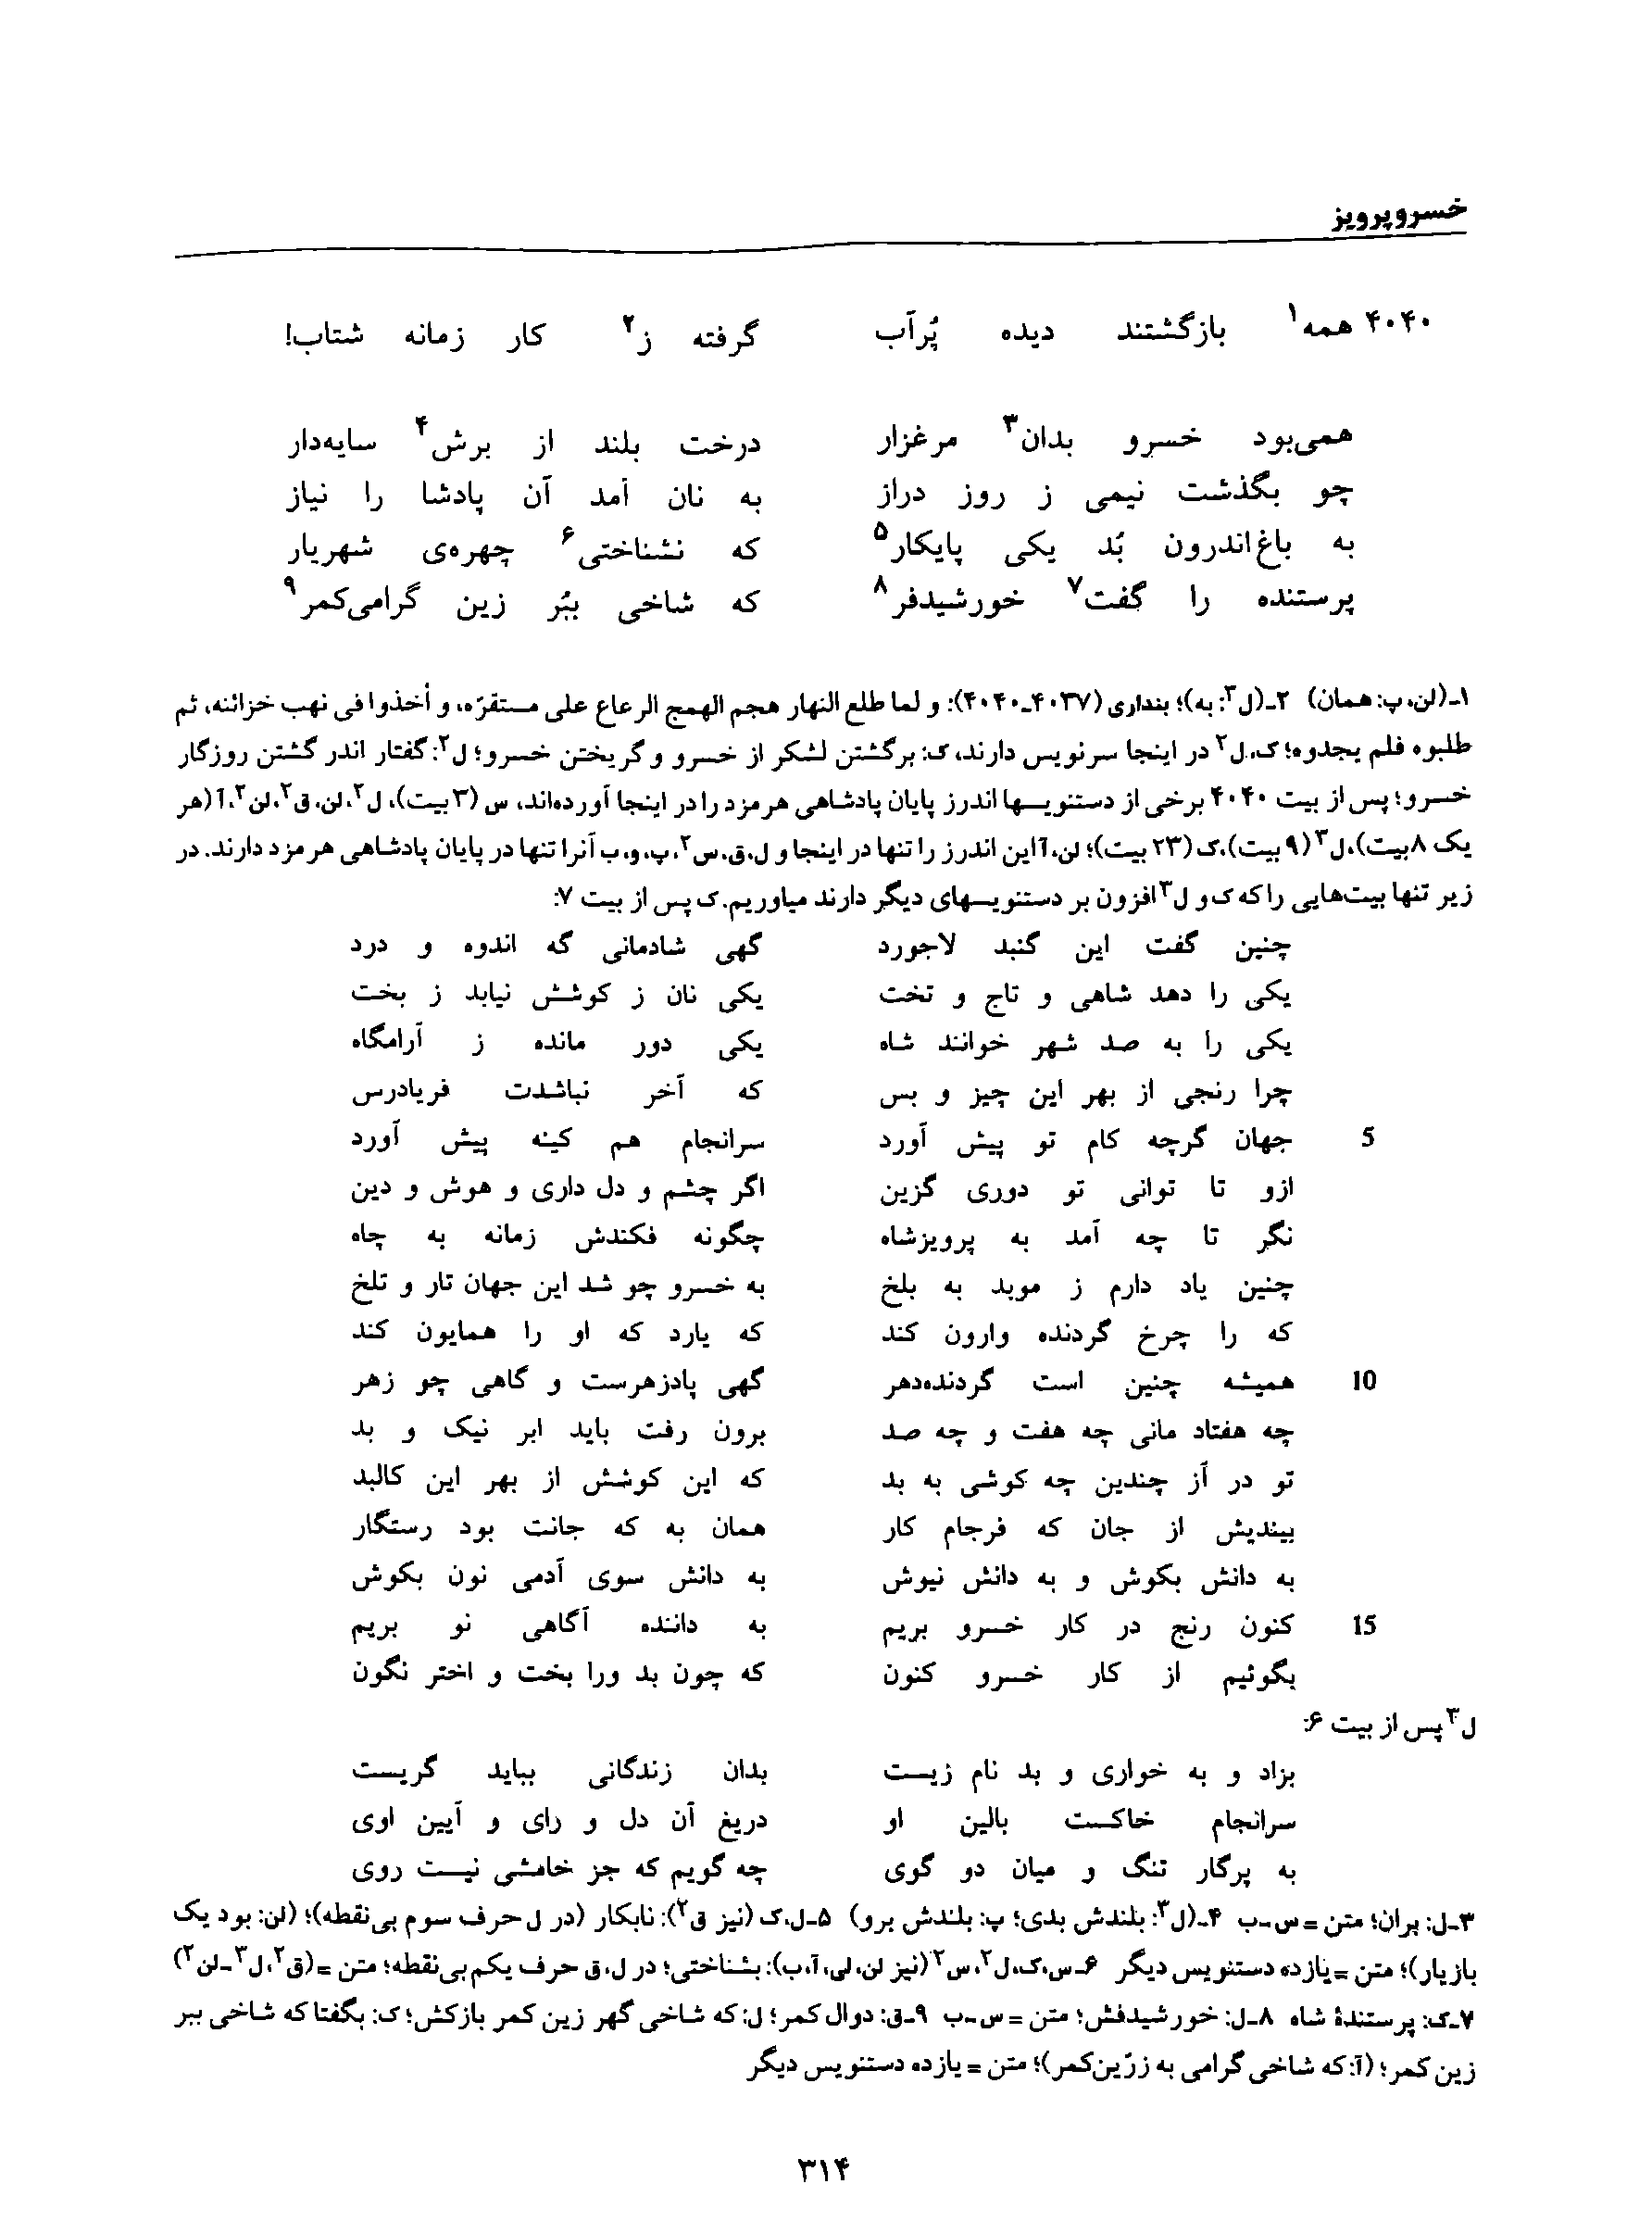 خسروپرویز
۴۰۴۰ همه۱ بازگشتند دیده پُرآب گرفته ز۲ کار زمانه شتاب!
همی‌بود خسرو بدان۳ مرغزار درخت بلند از برش۴ سایه‌دار
چو بگذشت نیمی ز روز دراز به نان آمد آن پادشا را نیاز
به باغ‌اندرون بُد یکی پایکار۵ که نشناختی۶ چهره‌ی شهریار
پرستنده را گفت۷ خورشیدفر۸ که شاخی ببُر زین گرامی‌کمر۹
۱ـ(لن، پ: همان) ۲ـ(ل۳: به)؛ بنداری (۴۰۳۷ـ۴۰۴۰): و لما طلع النهار هجم الهمج الرعاع علی مستقرّه، و أخذوا فی نهب خزائنه، ثم
طلبوه فلم یجدوه؛ ک، ل۲ در اینجا سرنویس دارند، ک: برگشتن لشکر از خسرو و گریختن خسرو؛ ل۲: گفتار اندر گشتن روزگار
خسرو؛ پس از بیت ۴۰۴۰ برخی از دستنویسها اندرز پایان پادشاهی هرمزد را در اینجا آورده‌اند، س (۳ بیت)، ل۲، لن، ق۲، لن۲، آ (هر
یک ۸ بیت)، ل۳ (۹ بیت)، ک (۲۳ بیت)؛ لن، آ این اندرز را تنها در اینجا و ل، ق، س۲، پ، و، ب آنرا تنها در پایان پادشاهی هرمزد دارند. در
زیر تنها بیت‌هایی را که ک و ل۳ افزون بر دستنویسهای دیگر دارند میاوریم. ک پس از بیت ۷:
چنین گفت این گنبد لاجورد گهی شادمانی گه اندوه و درد
یکی را دهد شاهی و تاج و تخت یکی نان ز کوشش نیابد ز بخت
یکی را به صد شهر خوانند شاه یکی دور مانده ز آرامگاه
چرا رنجی از بهر این چیز و بس که آخر نباشدت فریادرس
5 جهان گرچه کام تو پیش آورد سرانجام هم کینه پیش آورد
ازو تا توانی تو دوری گزین اگر چشم و دل داری و هوش و دین
نگر تا چه آمد به پرویزشاه چگونه فکندش زمانه به چاه
چنین یاد دارم ز موبد به بلخ به خسرو چو شد این جهان تار و تلخ
که را چرخ گردنده وارون کند که یارد که او را همایون کند
10 همیشه چنین است گردنده‌دهر گهی پادزهرست و گاهی چو زهر
چه هفتاد مانی چه هفت و چه صد برون رفت باید ابر نیک و بد
تو در آز چندین چه کوشی به بد که این کوشش از بهر این کالبد
بیندیش از جان که فرجام کار همان به که جانت بود رستگار
به دانش بکوش و به دانش نیوش به دانش سوی آدمی نون بکوش
15 کنون رنج در کار خسرو بریم به داننده آگاهی نو بریم
بگوئیم از کار خسرو کنون که چون بد ورا بخت و اختر نگون
ل۳ پس از بیت ۶:
بزاد و به خواری و بد نام زیست بدان زندگانی بباید گریست
سرانجام خاکست بالین او دریغ آن دل و رای و آیین اوی
به پرگار تنگ و میان دو گوی چه گویم که جز خامشی نیست روی
۳ـ ل: بران؛ متن = س ـ ب ۴ـ(ل۳: بلندش بدی؛ پ: بلندش برو) ۵ـ ل، ک (نیز ق۲): نابکار (در ل حرف سوم بی‌نقطه)؛ (لن: بود یک
بازیار)؛ متن = یازده دستنویس دیگر ۶ـ س، ک، ل۲، س۲ (نیز لن، لی، آ، ب): بشناختی؛ در ل، ق حرف یکم بی‌نقطه؛ متن = (ق۲، ل۳ ـ لن۲)
۷ـ ک: پرستندهٔ شاه ۸ـ ل: خورشیدفش؛ متن = س ـ ب ۹ـ ق: دوال کمر؛ ل: که شاخی گهر زین کمر بازکش؛ ک: بگفتا که شاخی ببر
زین کمر؛ (آ: که شاخی گرامی به زرّین‌کمر)؛ متن = یازده دستنویس دیگر
۳۱۴